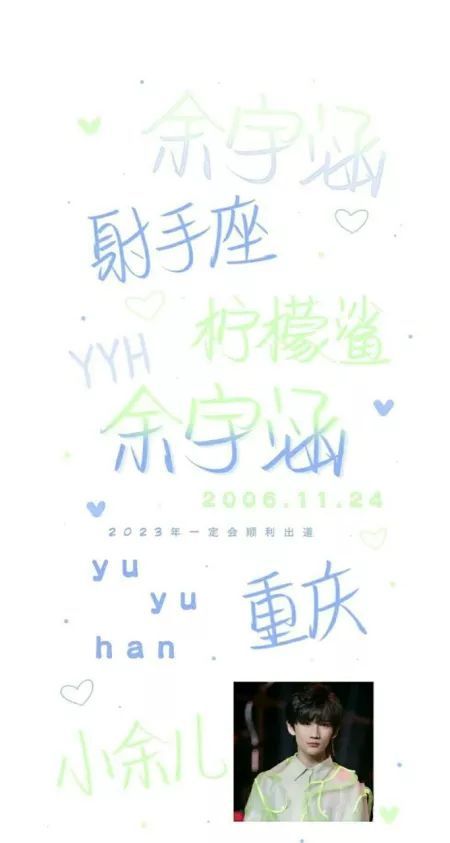 余宇涵
射手座
柠檬鲨
YYH
余宇涵
2006.11.24
2023年一定会顺利出道
yu
yu
han
重庆
小余儿